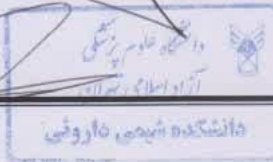 دانشگاه علوم پزشکی
آزاد اسلامی تهران
دانشکده شیمی داروئی